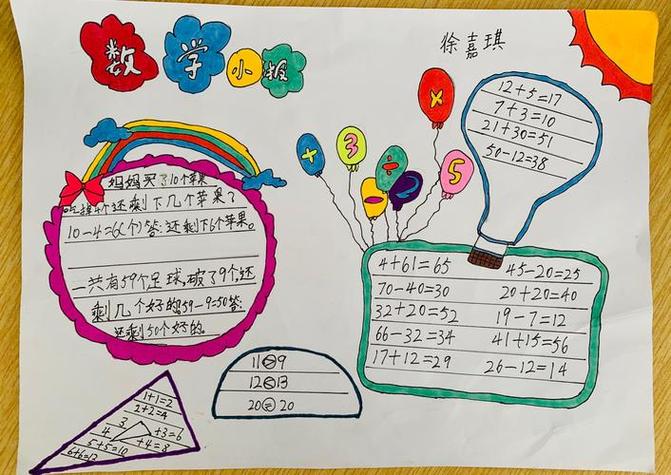 数学小报
徐嘉琪
12+5=17
7+3=10
21+30=51
50-12=38
+ 3 ÷ - 2 × 5
妈妈买了10个苹果
吃掉4个还剩下几个苹果了
10-4=6(个)答:还剩下6个苹果。
一共有59个足球,破了9个,还
剩几个好的59-9=50答:
还剩50个好的
4+61=65 45-20=25
70-40=30 20+20=40
32+20=52 19-7=12
66-32=34 41+15=56
17+12=29 26-12=14
11>9
12<13
20=20
1+1=2
2+2=4
3 +3=6
4 +4=8
5+5=10
6+6=12